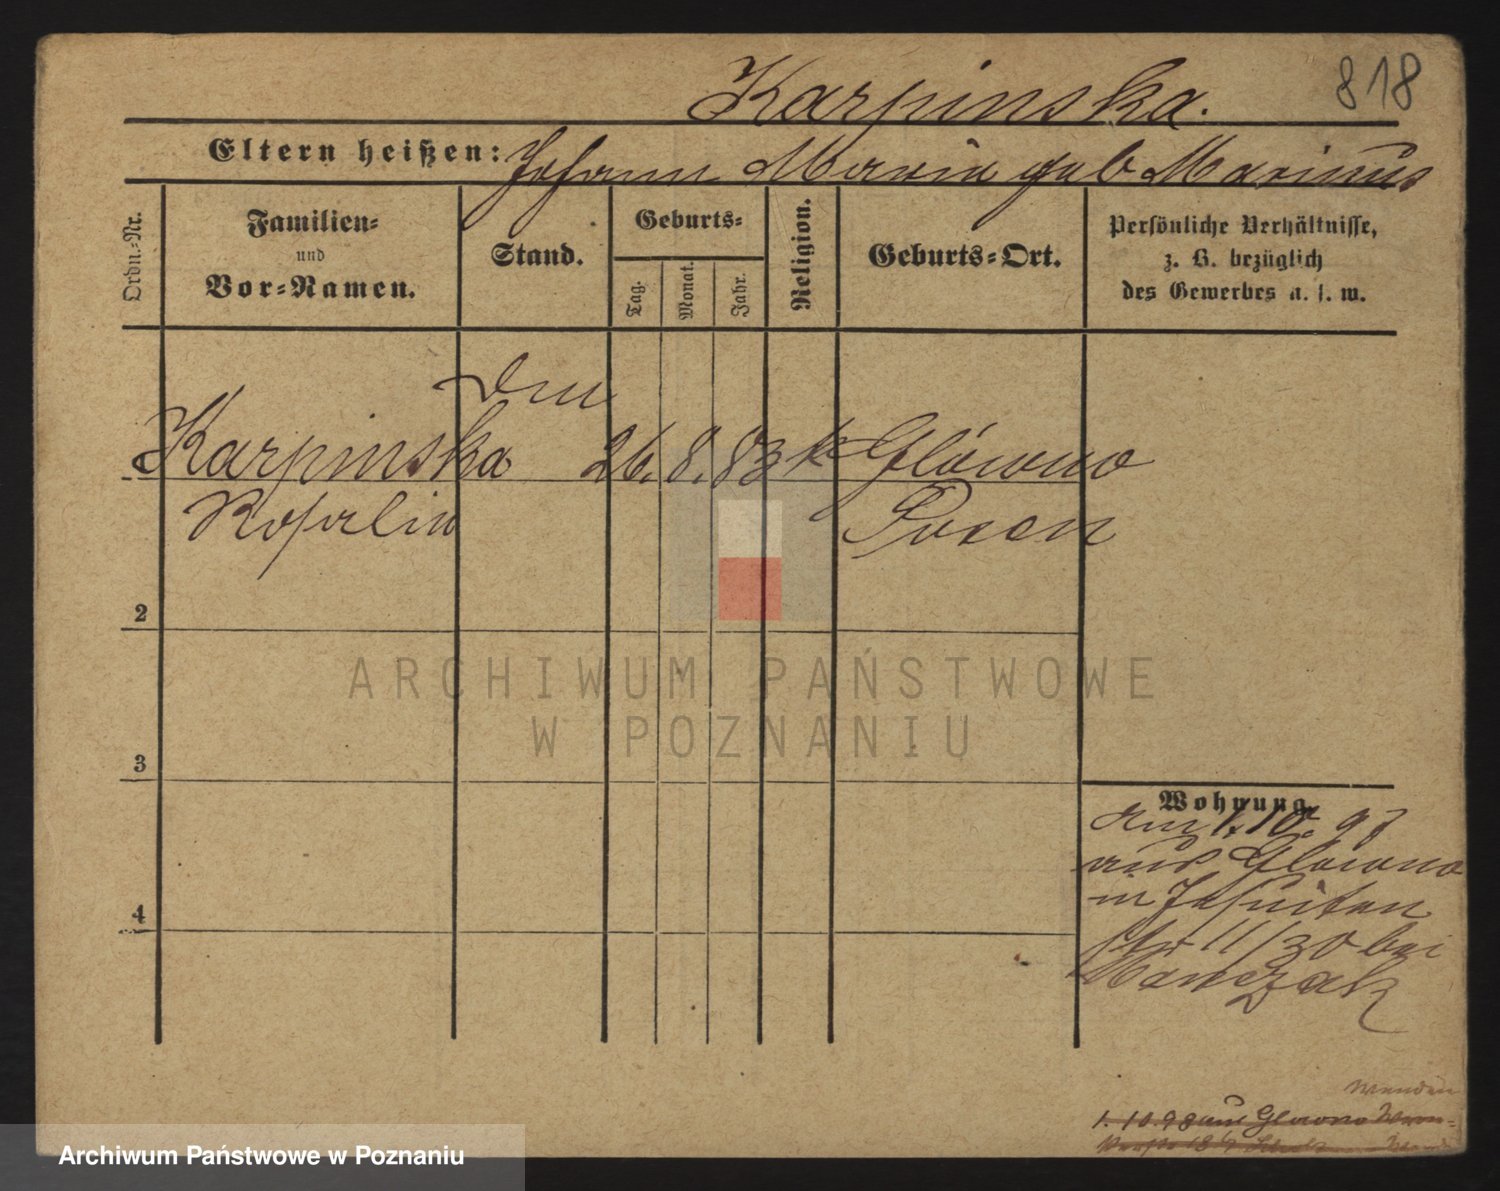 818
Karpinska.
Eltern heißen: Johann Maria geb Marinus
Ordn.=Nr.
Familien=
und
Vor=Namen.
Stand.
Geburts=
Tag.
Monat.
Jahr.
Religion.
Geburts=Ort.
Persönliche Verhältnisse,
z. B. bezüglich
des Gewerbes u. s. w.
Karpinska 26. 8. 83 k Glówno
Rosalia Posen
2
3
4
ARCHIWUM PAŃSTWOWE
W POZNANIU
Wohnung.
10. 98
aus Glowno
in Jesuiten
str 11/30 bei
Wenden
1. 10. 98 aus Glowno
Archiwum Państwowe w Poznaniu